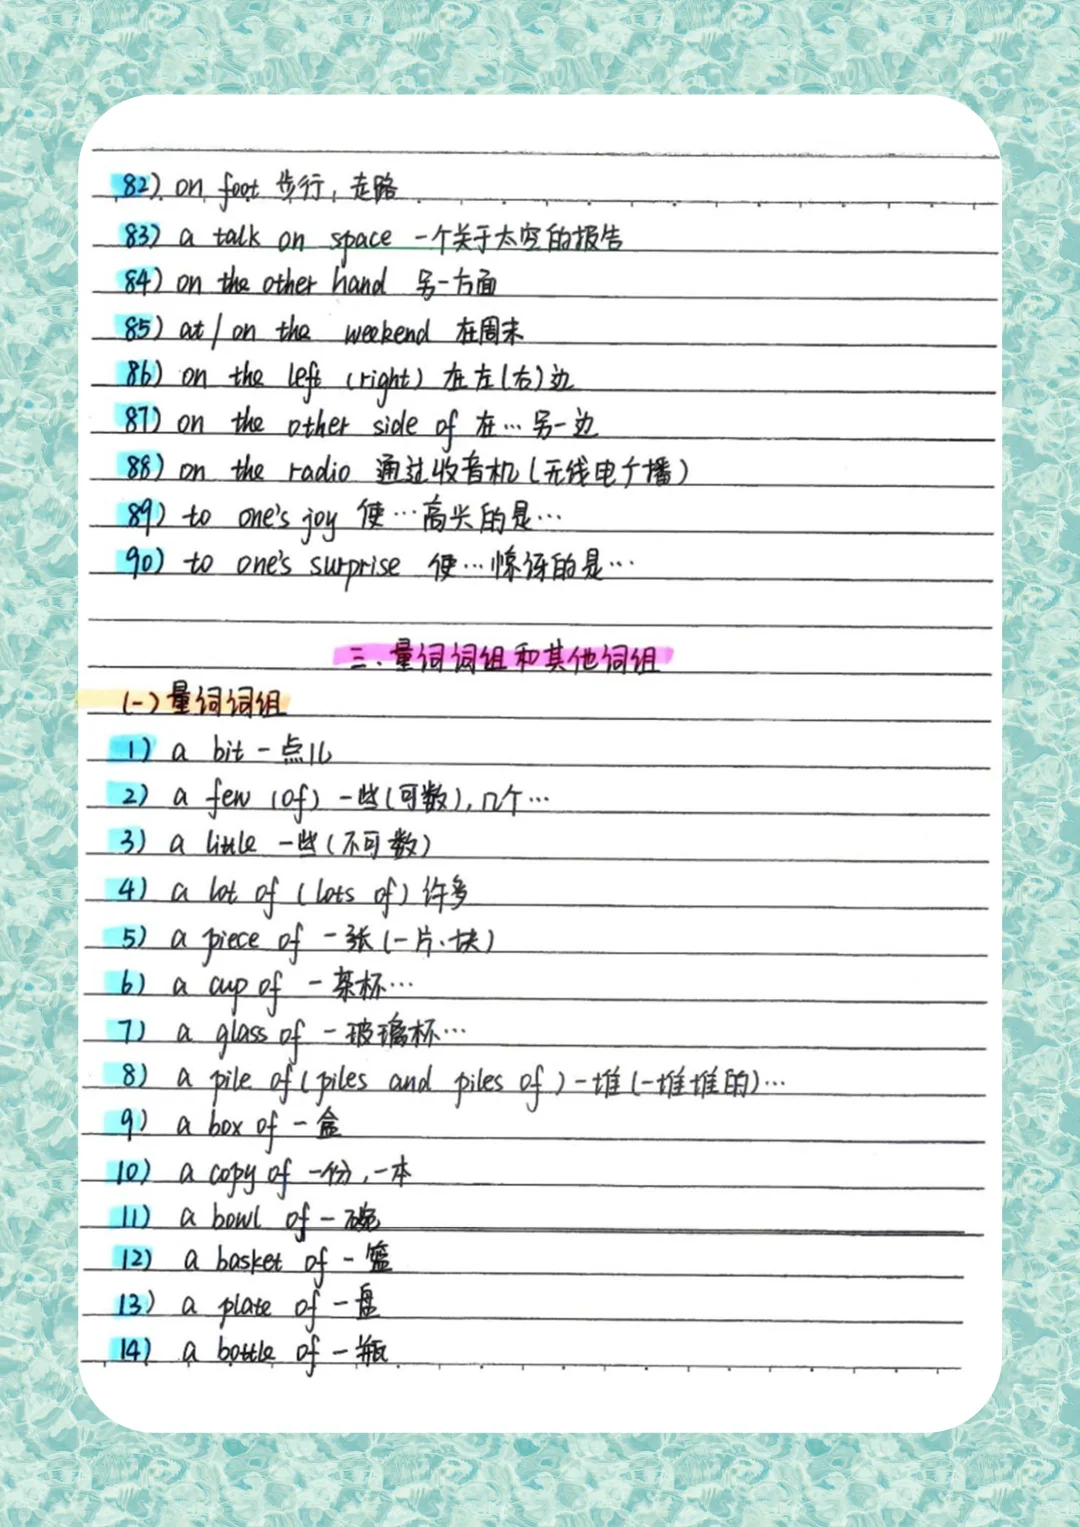 82) on foot 步行, 走路
83) a talk on space 一个关于太空的报告
84) on the other hand 另一方面
85) at / on the weekend 在周末
86) on the left (right) 在左(右)边
87) on the other side of 在…另一边
88) on the radio 通过收音机(无线电广播)
89) to one's joy 使…高兴的是…
90) to one's surprise 使…惊讶的是…
三、量词词组和其他词组
(一)量词词组
1) a bit 一点儿
2) a few (of) 一些(可数),几个…
3) a little 一些(不可数)
4) a lot of (lots of) 许多
5) a piece of 一张(一片、块)
6) a cup of 一茶杯…
7) a glass of 一玻璃杯…
8) a pile of (piles and piles of) 一堆(一堆堆的)…
9) a box of 一盒
10) a copy of 一份, 一本
11) a bowl of 一碗
12) a basket of 一篮
13) a plate of 一盘
14) a bottle of 一瓶